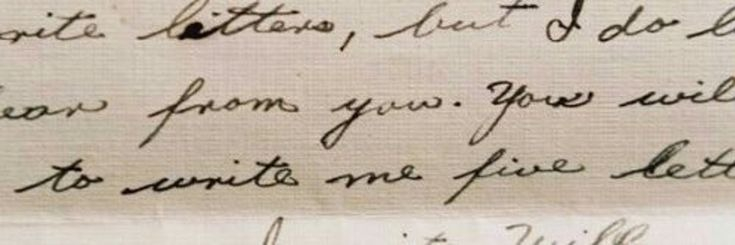 rite letters, but I do l
ear from you. You wil
to write me five lett